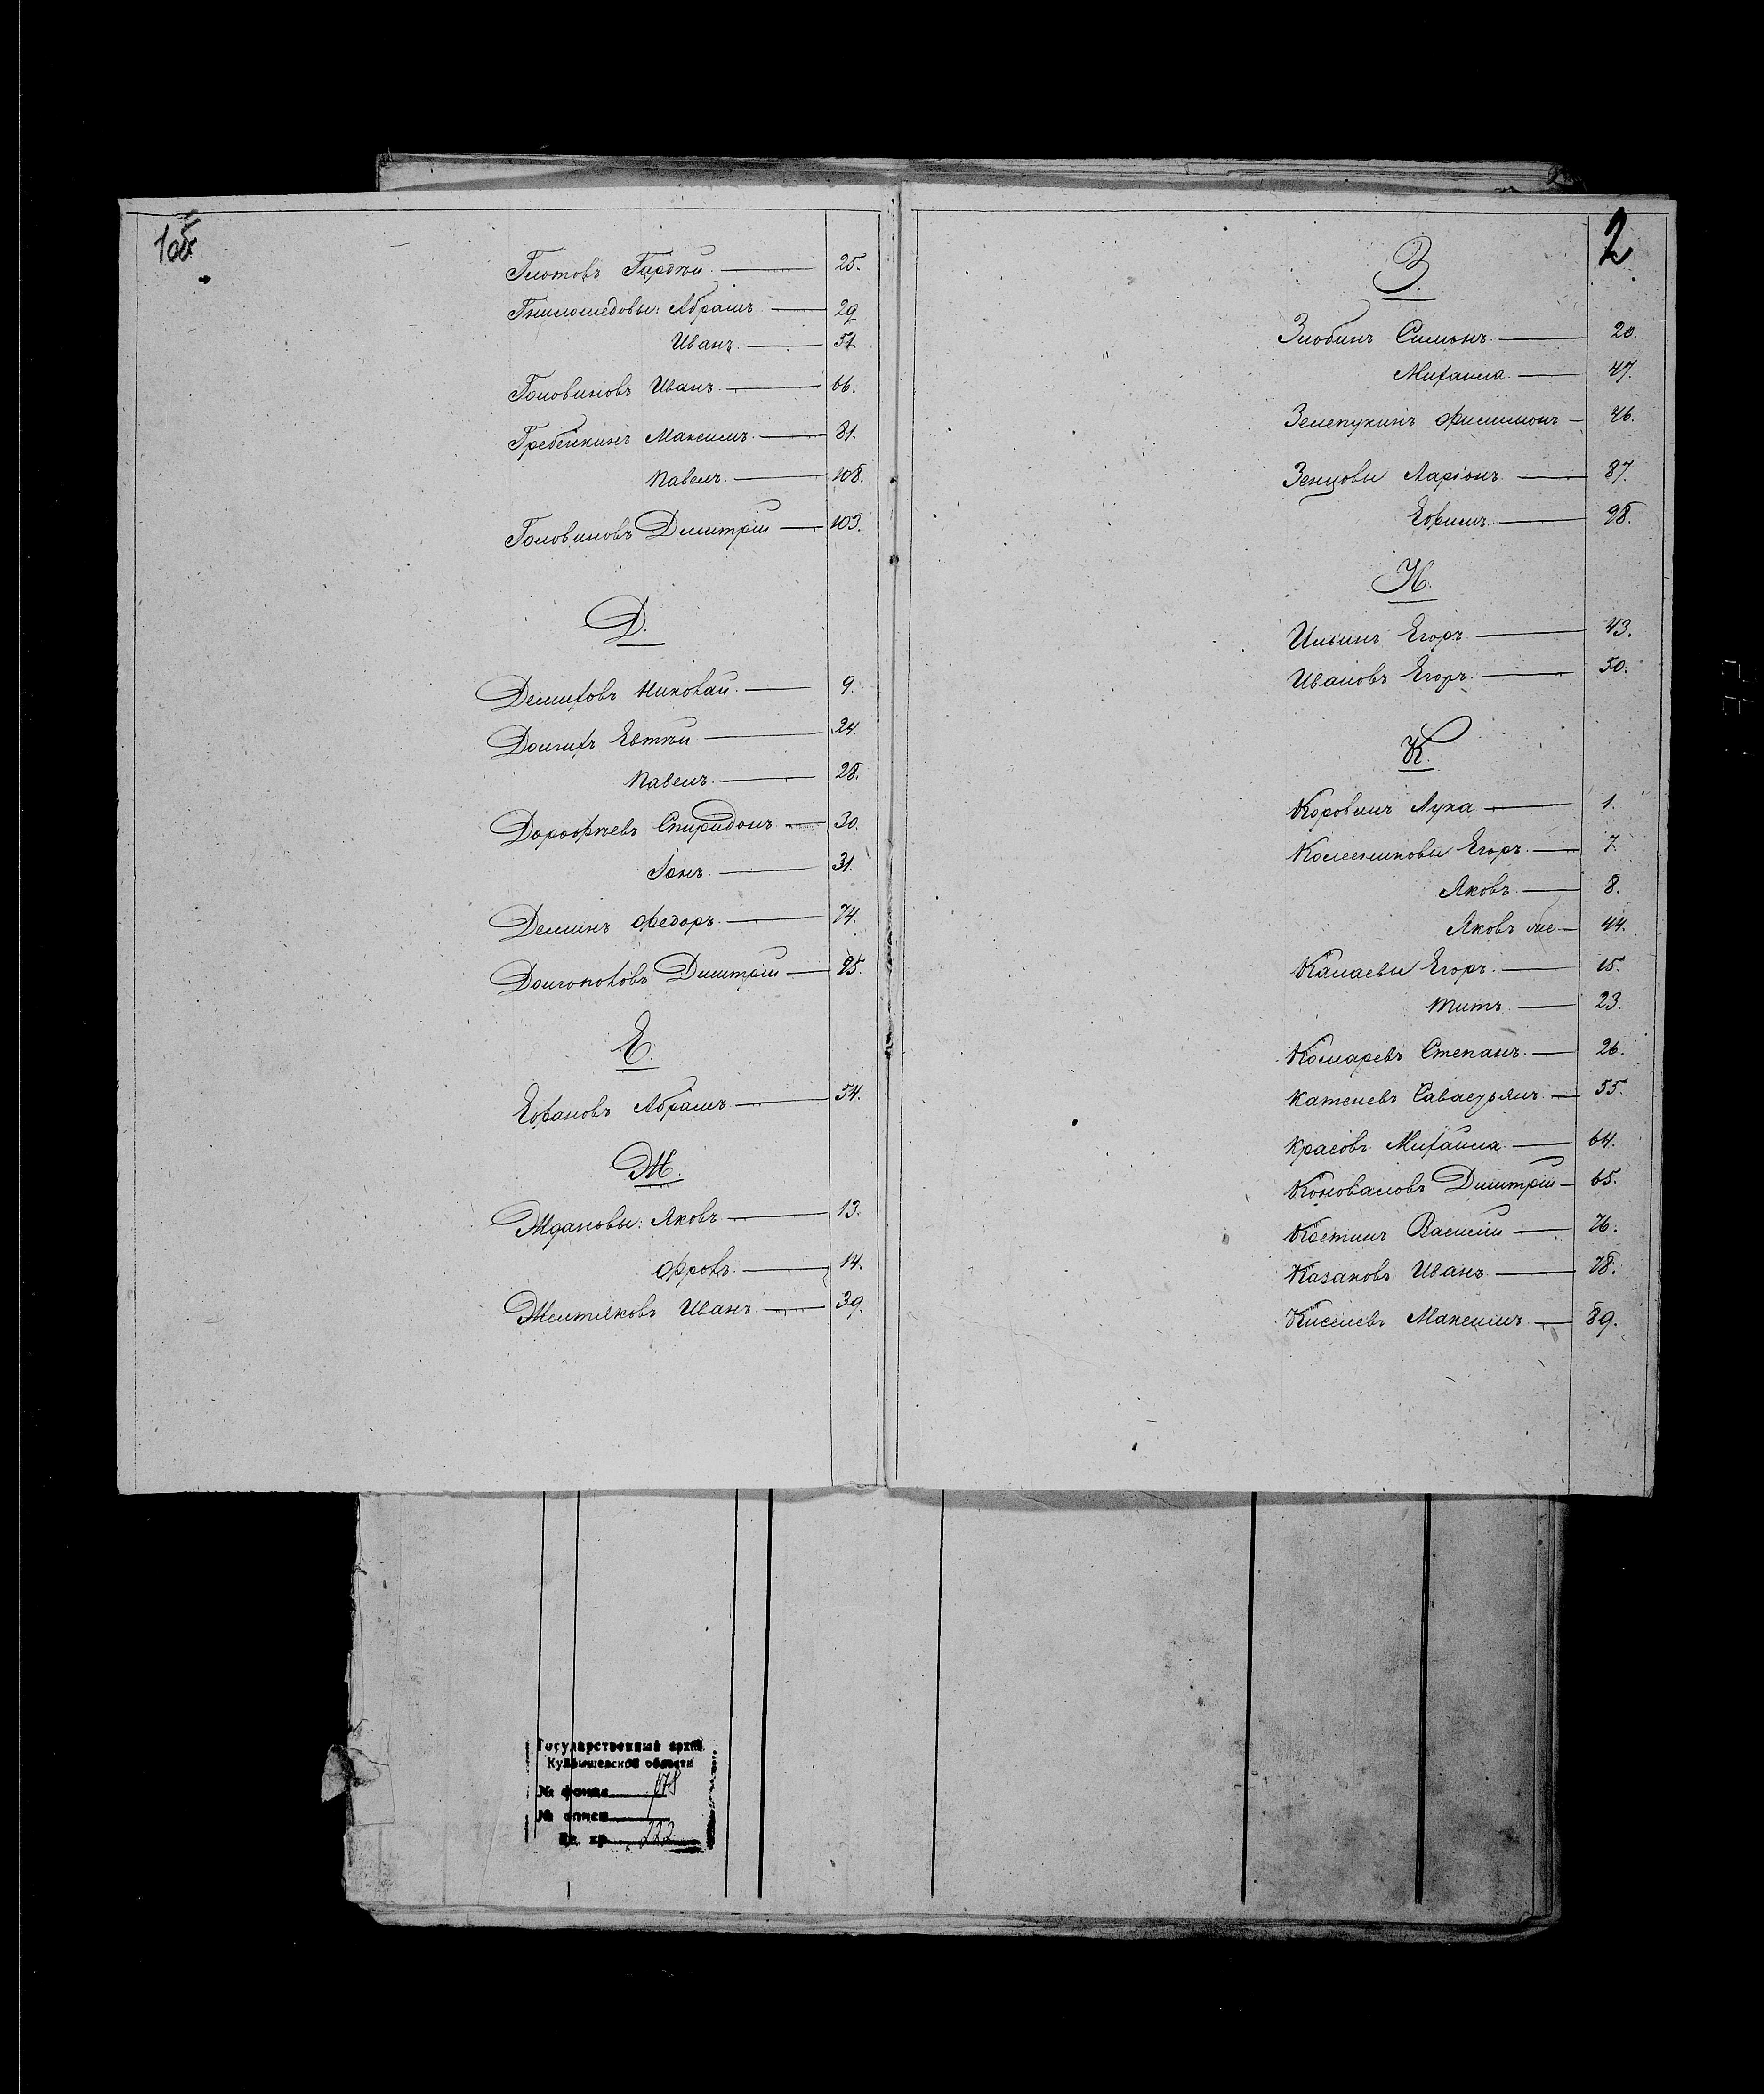 1об
Глотовъ Гордѣй 25.
Гниломедовы: Абрамъ 29
Иванъ 51
Головиновъ Иванъ 66.
Гребенкинъ Максимъ 81.
Павелъ 108.
Головиновъ Дмитрій 103.
Д.
Демиховъ Николай 9.
Долгихъ Евтѣй 24.
Павелъ 28.
Дорофѣевъ Спиридонъ 30.
Іонъ 31.
Деминъ Федоръ 74.
Долгополовъ Дмитрій 95.
Е.
Ефановъ Абрамъ 54.
Ж.
Ждановы: Яковъ 13.
Фролъ 14.
Желтяковъ Иванъ 39.
2
З.
Злобинъ Симонъ 20.
Михаила 47.
Зелепукинъ Филимонъ 46.
Зенцовы Ларіонъ 87.
Ефимъ 98.
И.
Ильинъ Егоръ 43.
Ивановъ Егоръ 50.
К.
Коровинъ Лука 1.
Колесниковы Егоръ 7.
Яковъ 8.
Яковъ 44.
Калаевы Егоръ 15.
Титъ 23.
Комаревъ Степанъ 26.
Кателевъ Савастьянъ 55.
Красовъ Михаила 64.
Коноваловъ Дмитрій 65.
Костинъ Василій 76.
Казаковъ Иванъ 78.
Киселевъ Максимъ 89.
Государственный архив
Куйбышевской области
№ фонда 178
№ описи
Ед. хр. 222